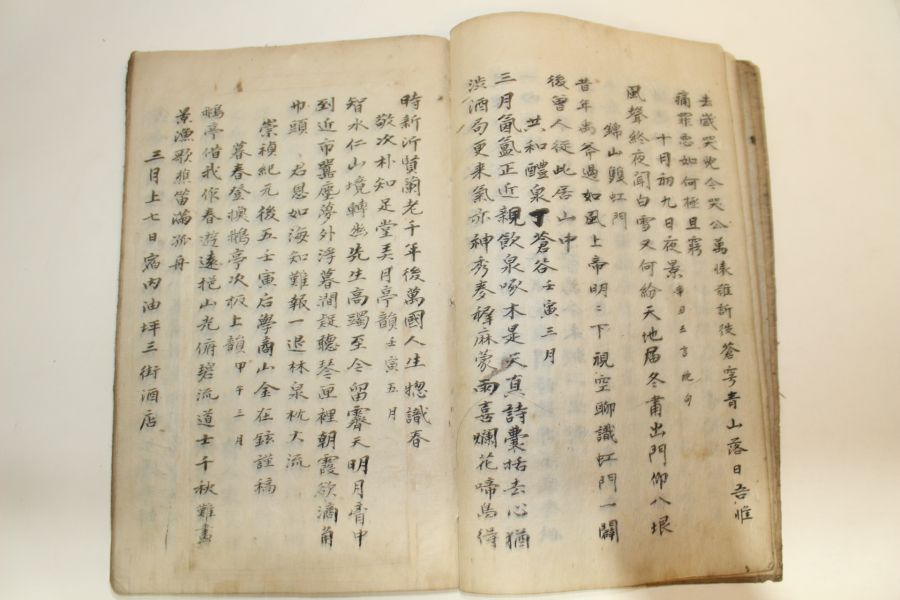 去歲哭兒今哭公萬悽誰訴彼蒼穹青山落日吾惟
痛罪惡如何極且窮
十月初九日夜景 辛丑五言絶句
風聲終夜聞白雪又何紛天地届冬肅出門仰八垠
錦山頭虹門
昔年禹斧過如風上帝明明下視空聊識虹門一闢
後曾人從此居山中
共和醴泉丁蒼谷壬寅三月
三月氤氳正近親飮泉啄木是天真詩囊括去心猶
澁酒局更来氣亦神秀麥稺麻蒙雨喜爛花啼鳥得
時新沂贊蘭老千年後萬國人生惣識春
敬次朴知足堂美月亭韻 壬寅五月
智水仁山境轉幽先生高躅至今留霽天明月會中
到近市囂塵夢外浮暮澗疑聽琴匣裡朝霞欲滴角
巾頭 君恩如海知難報一退林泉枕大流
崇禎紀元後五壬寅后學商山金在鉉謹稿
暮春登槐鵝亭次板上韻 甲午三月
鵝亭借我作春遊遠挹山光俯碧流道士千秋難畫
景漁歌樵笛滿孤舟
三月上七日宿丙油坪三街酒店